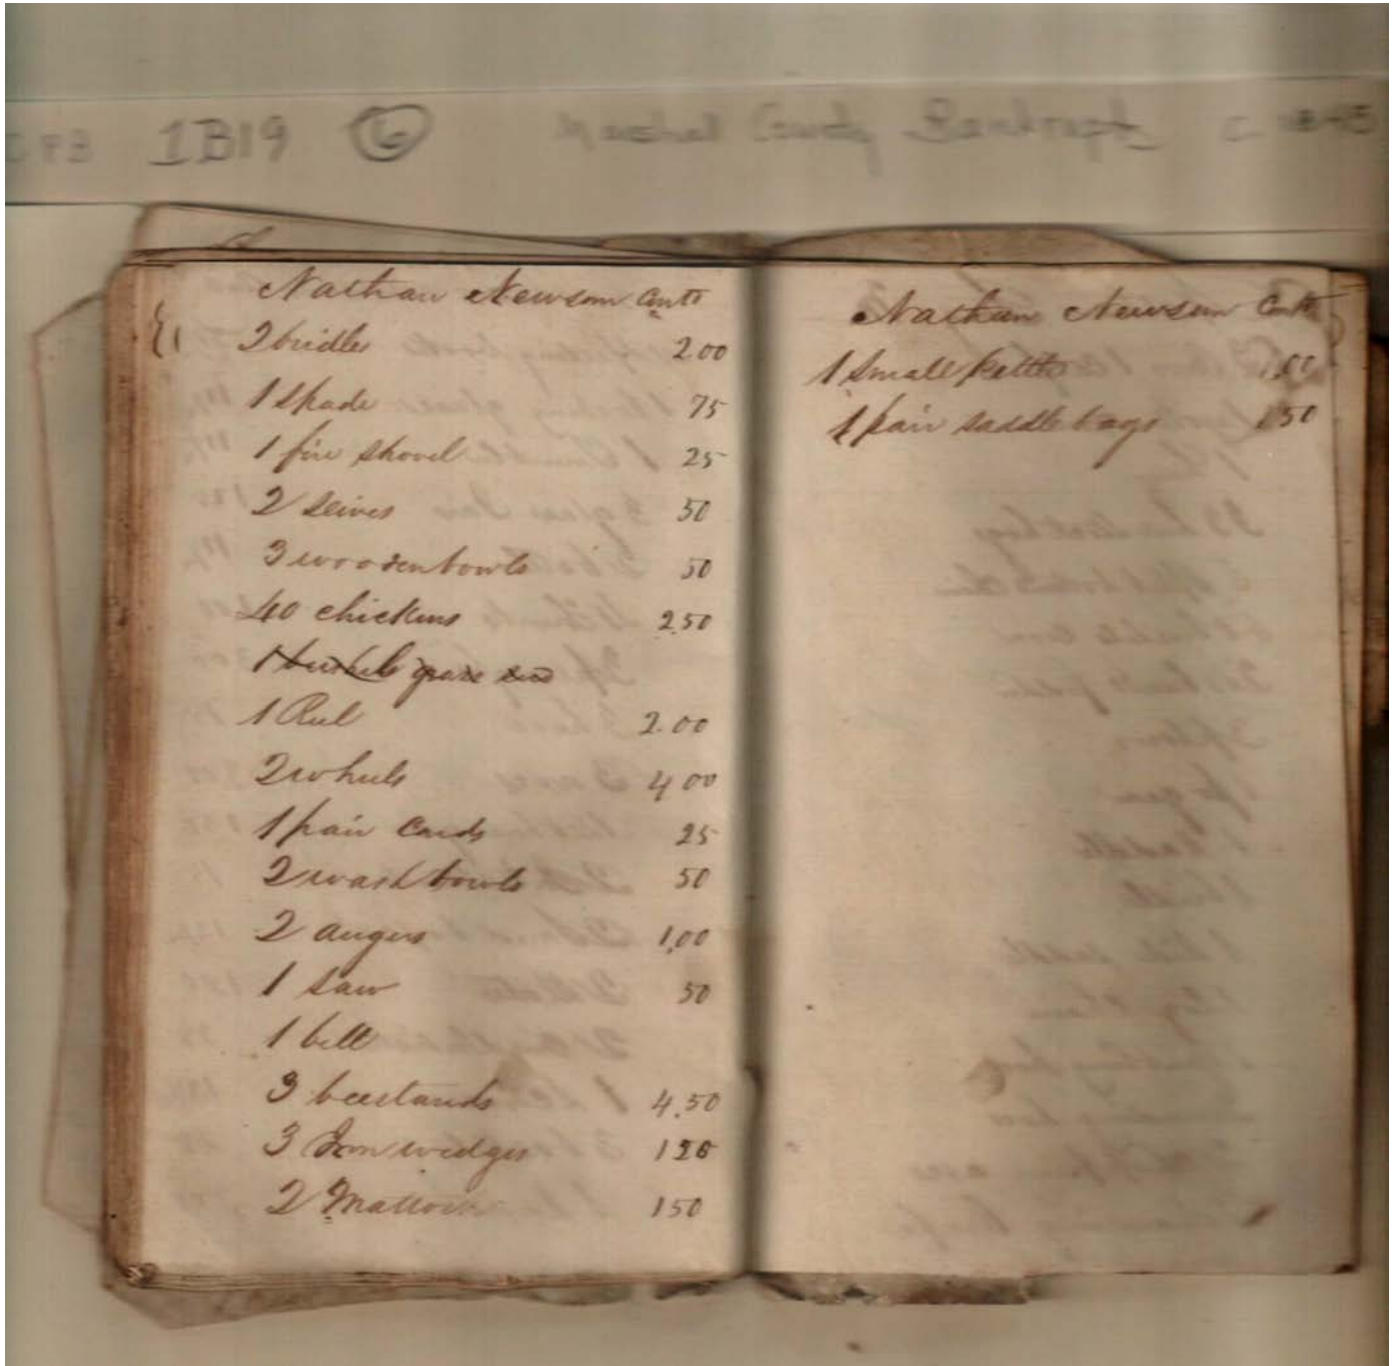 1B19 6 Marshal County Bankrupt
Nathan Newsom Contd
2 bridles 2.00
1 Spade 75
1 fire shovel 25
2 seives 50
3 wooden bowls 50
40 chickens 2.50
1 bushels grass seed
1 Reel 2.00
2 wheels 4 00
1 pair Cards 25
2 wash bowls 50
2 augers 1,00
1 saw 50
1 bell
3 beestands 4.50
3 Iron wedges
2 Mattock 150
Nathan Newsom Contd
1 Small kettle 1.00
1 pair saddle bags 150